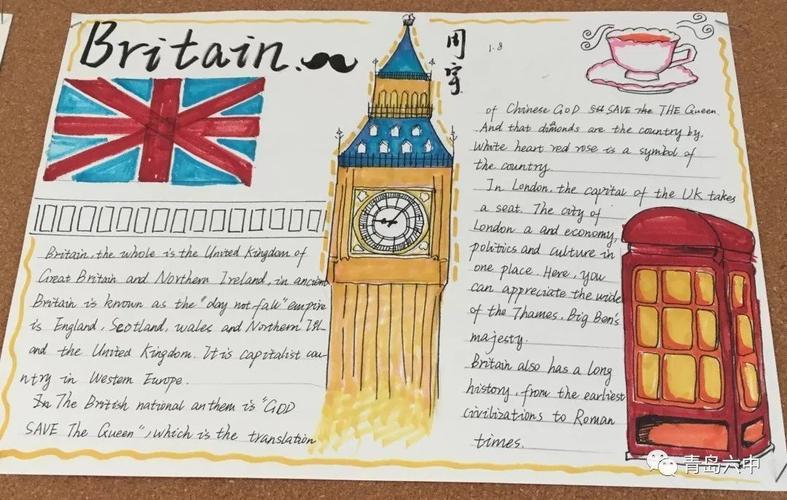 Britain.
周宇
1.8
Britain, the whole is the United Kingdom of
Great Britain and Northern Ireland, in ancient
Britain is known as the "day not fall" empire
is England, Scotland, wales and Northern IRL
and the United Kingdom. It is capitalist cou-
ntry in Western Europe.
In The British national anthem is "GOD
SAVE The Queen", which is the translation
of Chinese GOD SAVE the THE Queen.
And that dimonds are the country by,
white heart red rose is a symbol of
the country.
In London, the capital of the UK takes
a seat. The city of
London a and economy,
politics and culture in
one place. Here, you
can appreciate the wide
of the Thames, Big Ben's
majesty.
Britain also has a long
history, from the earliest
civilizations to Roman
times.
青岛六中